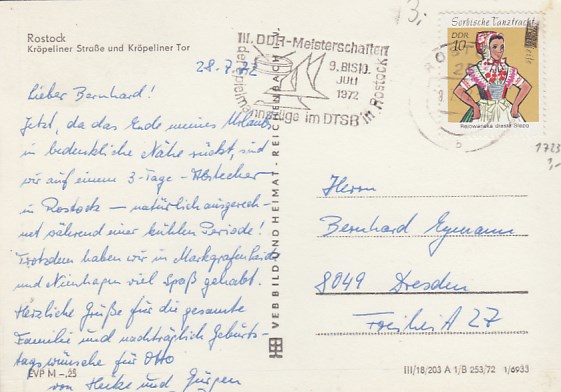 Rostock
Kröpeliner Straße und Kröpeliner Tor
28.7.72
Lieber Bernhard!
Jetzt, da das Ende meines Urlaubs
in bedenkliche Nähe rückt, sind
wir auf einem 3-Tage-Abstecher
in Rostock – natürlich ausgerech-
net während einer kühlen Periode!
Trotzdem haben wir in Markgrafenheide
und Nienhagen viel Spaß gehabt.
Herzliche Grüße für die gesamte
Familie und nachträglich Geburts-
tagswünsche für Otto
von Heike und Jürgen
EVP M –,25
VEB BILD UND HEIMAT · REICHENBACH
III. DDR-Meisterschaften
9. BIS
JULI
1972
im DTSB in Rostock
Sorbische Tanztracht
DDR
10
Herrn
Bernhard Eymann
8049 Dresden
Freiheit A 27
III/18/203 A 1/B 253/72 1/6933